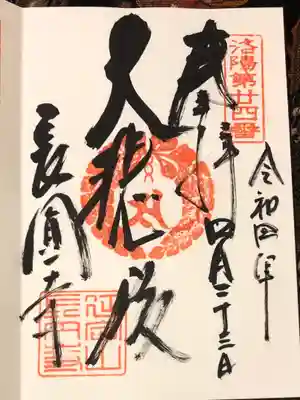 洛陽第廿四番
令和四年
奉拝
四月二十三日
大悲殿
長圓寺